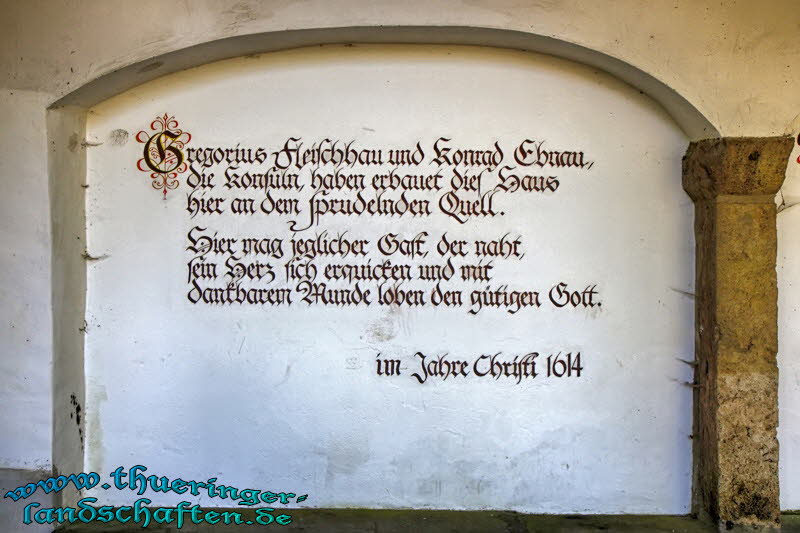 Gregorius Fleischhau und Konrad Ebnau,
die Konsuln, haben erbauet dies Haus
hier an dem sprudelnden Quell.
Hier mag jeglicher Gast, der naht,
sein Herz sich erquicken und mit
dankbarem Munde loben den gütigen Gott.
im Jahre Christi 1614
www.thueringer-
landschaften.de